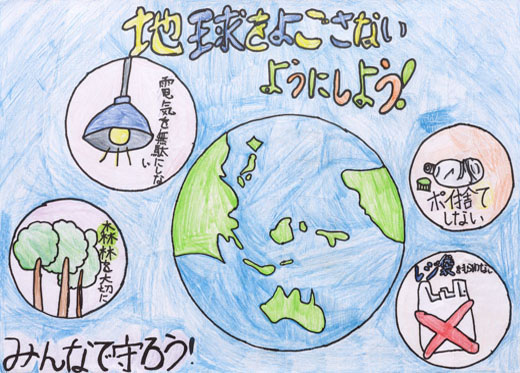 地球をよごさない
ようにしよう!
電気を無駄にしない
ポイ捨て
しない
森林を大切に
レジ袋をもらわない
みんなで守ろう!